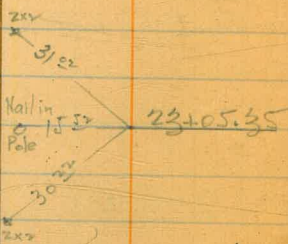 2x2
31 02
Nail in
Pole
15 52
23+05.35
30 22
2x2